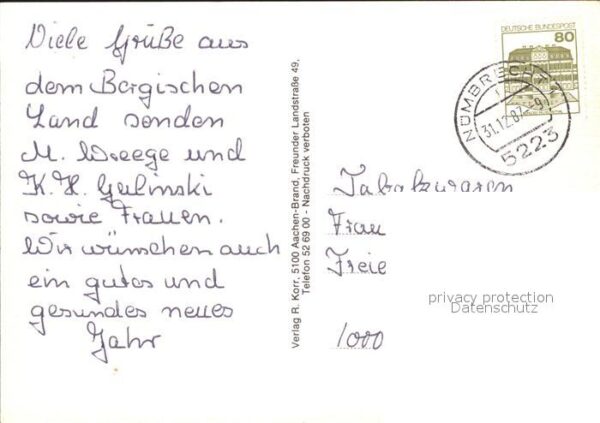 Viele Grüße aus
dem Bergischen
Land senden
M. Weege und
K. H. Galinski
sowie Frauen.
Wir wünschen auch
ein gutes und
gesundes neues
Jahr
Verlag R. Korr, 5100 Aachen-Brand, Freunder Landstraße 49,
Telefon 52 69 00 - Nachdruck verboten
DEUTSCHE BUNDESPOST
80
NÜMBRECHT 1
31.12.87-9
5223
Tabakwaren
Frau
Freie
1000
privacy protection
Datenschutz